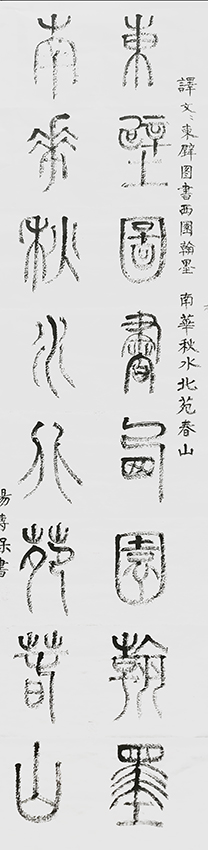 東壁圖書西園翰墨
南華秋水北苑春山
譯文：東壁图書西園翰墨 南華秋水北苑春山